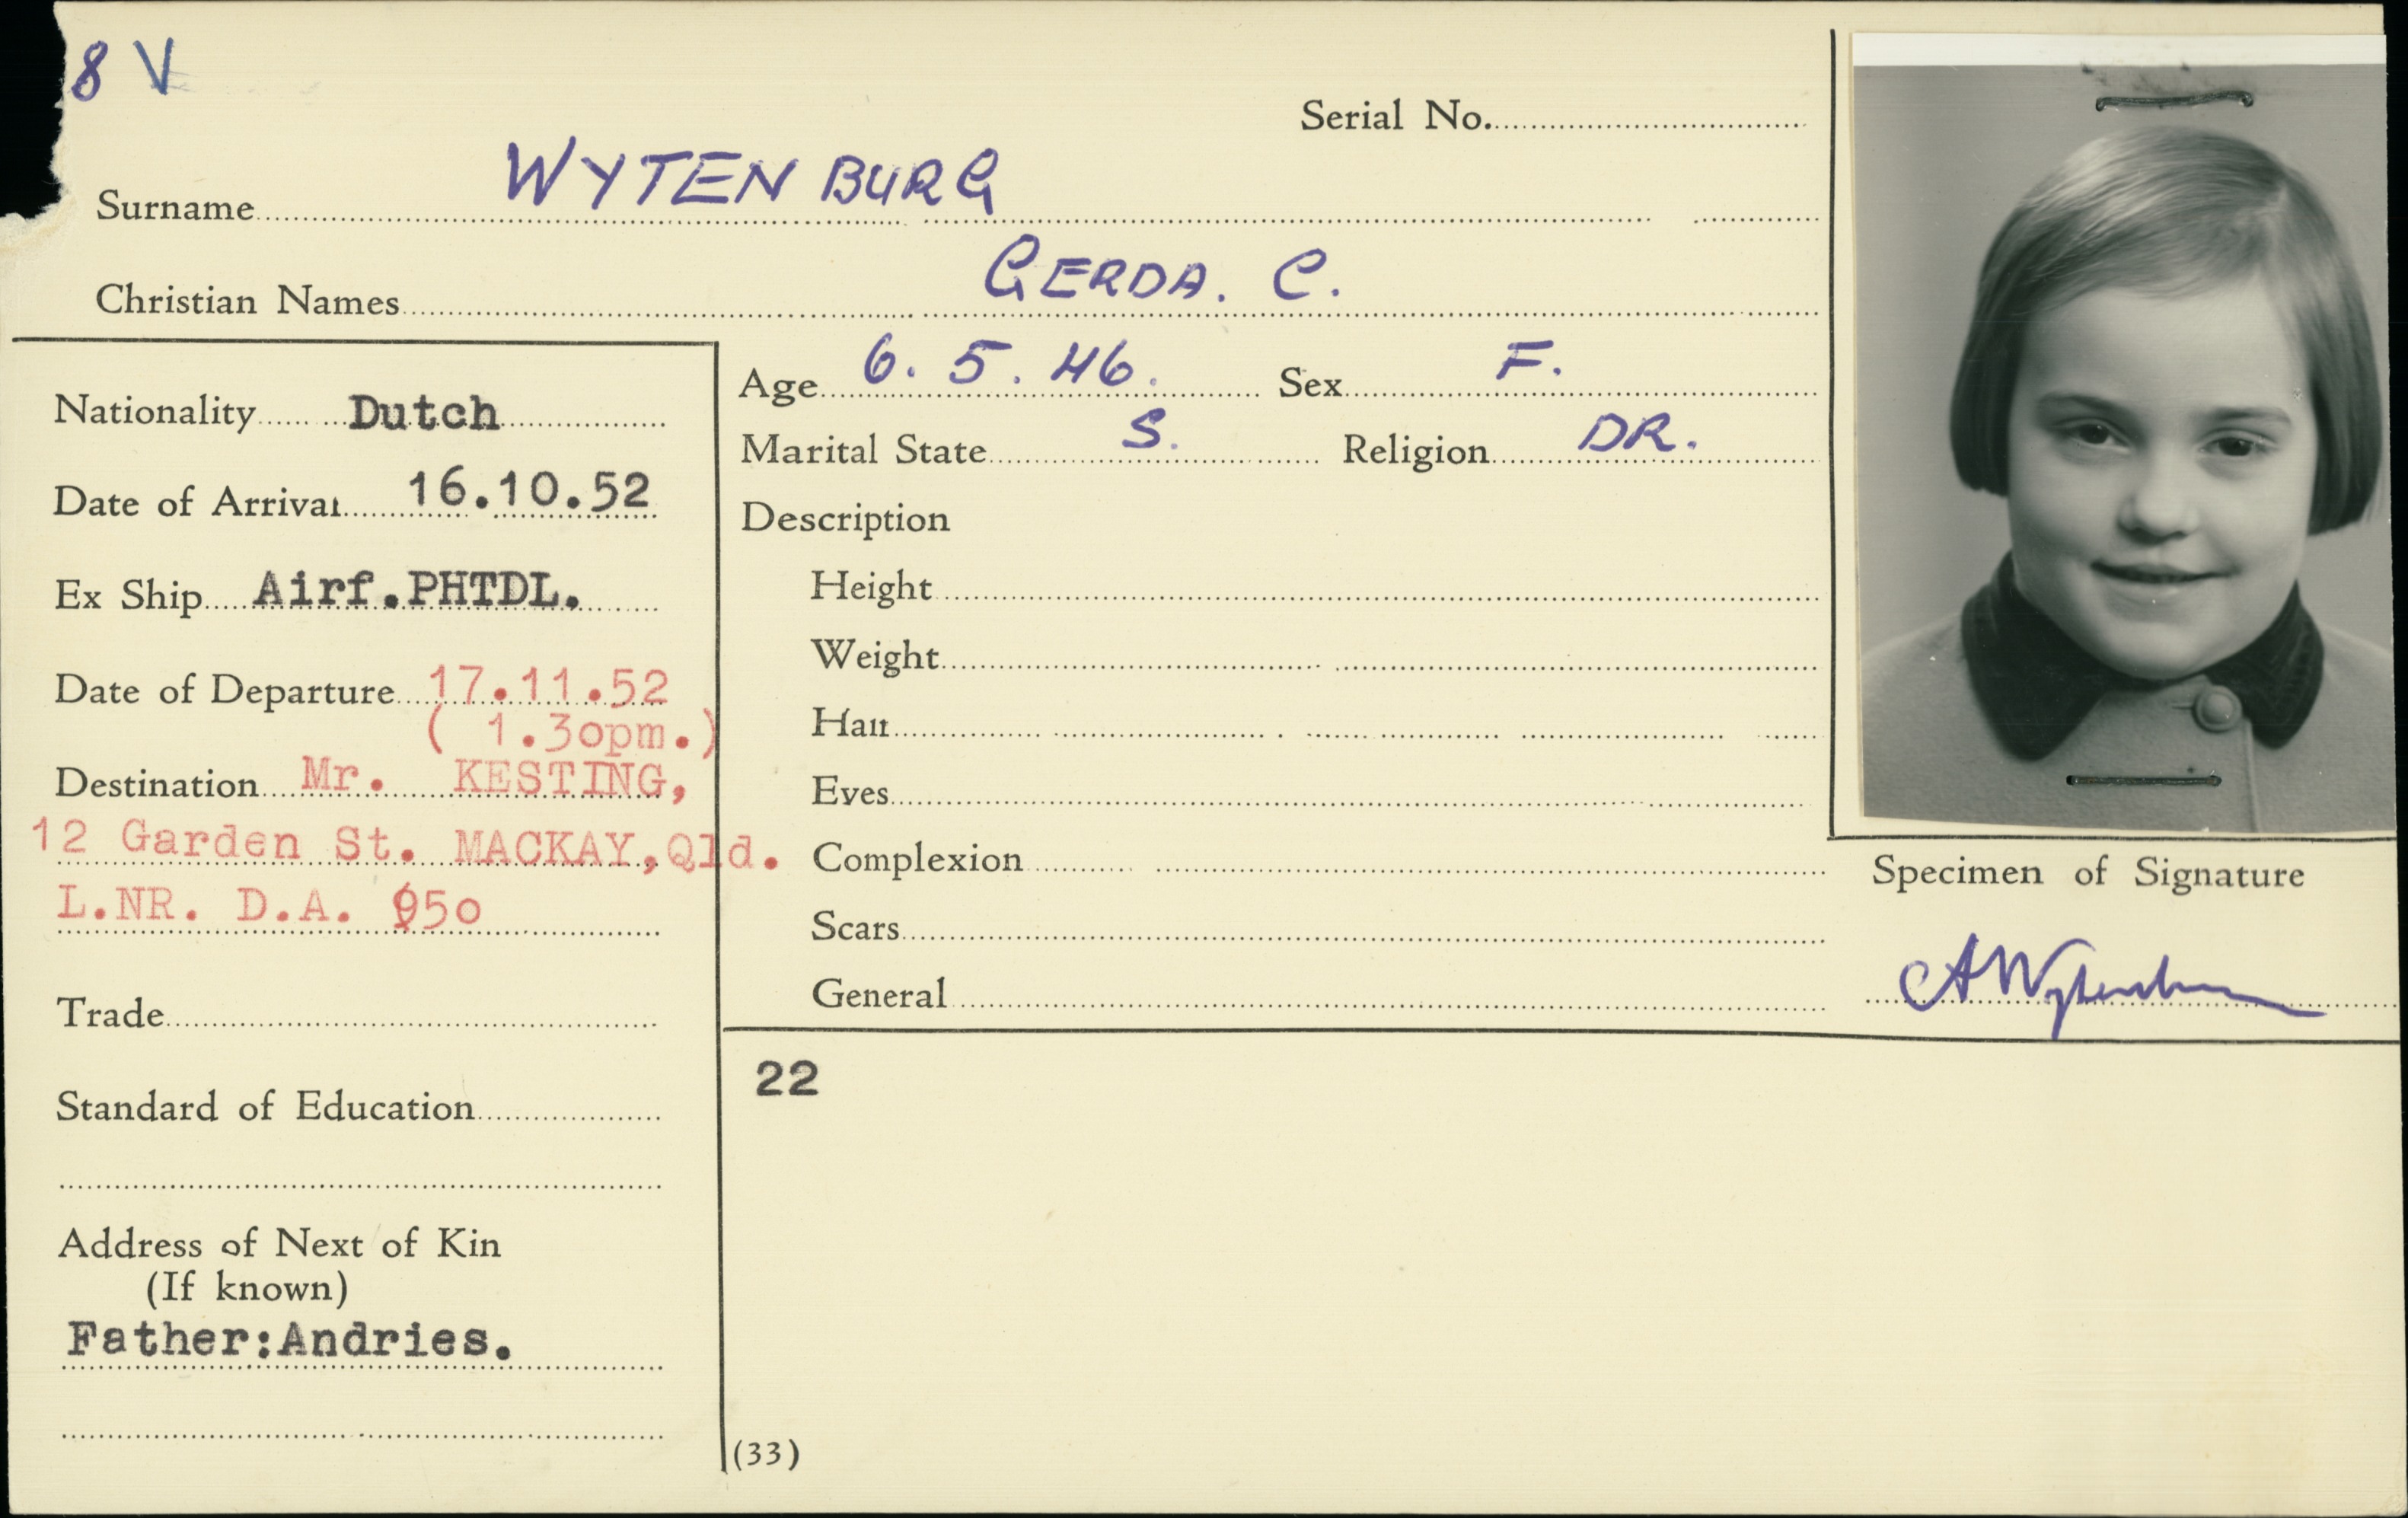 8 V
Serial No.
Surname WYTENBURG
Christian Names GERDA. C.
Nationality Dutch
Date of Arrival 16.10.52
Ex Ship Airf.PHTDL.
Date of Departure 17.11.52
( 1.30pm.)
Destination Mr. KESTING,
12 Garden St. MACKAY,Qld.
L.NR. D.A. 950
Trade
Standard of Education
Address of Next of Kin
(If known)
Father:Andries.
Age 6. 5. 46. Sex F.
Marital State S. Religion DR.
Description
Height
Weight
Hair
Eyes
Complexion
Scars
General
22
(33)
Specimen of Signature